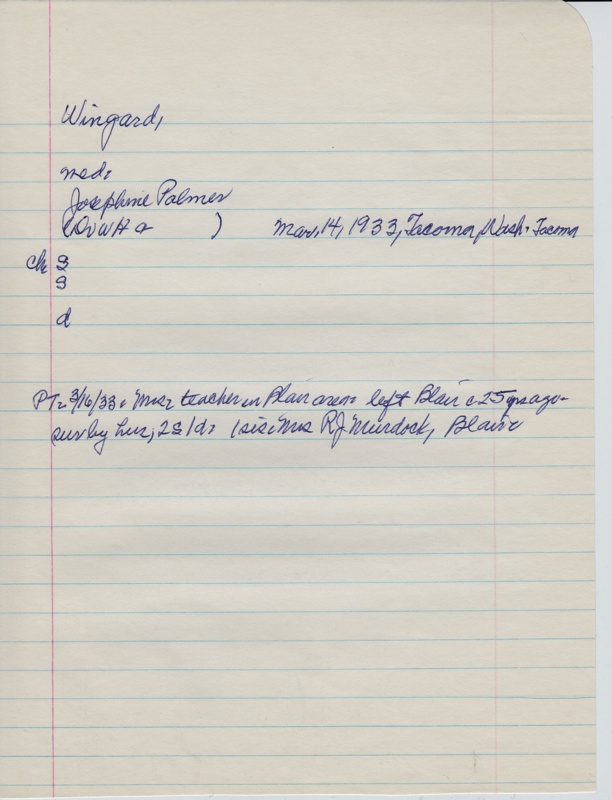 Wingard,
med:
Josephine Palmer
( )  Mar, 14, 1933, Tacoma, Wash. Tacoma
ch S
S
d
PT: 3/16/33: teacher in Blair area: left Blair c 25 yrs ago-
sur by hus, 2S 1d: 1 sis: Mrs RJ Murdock, Blair